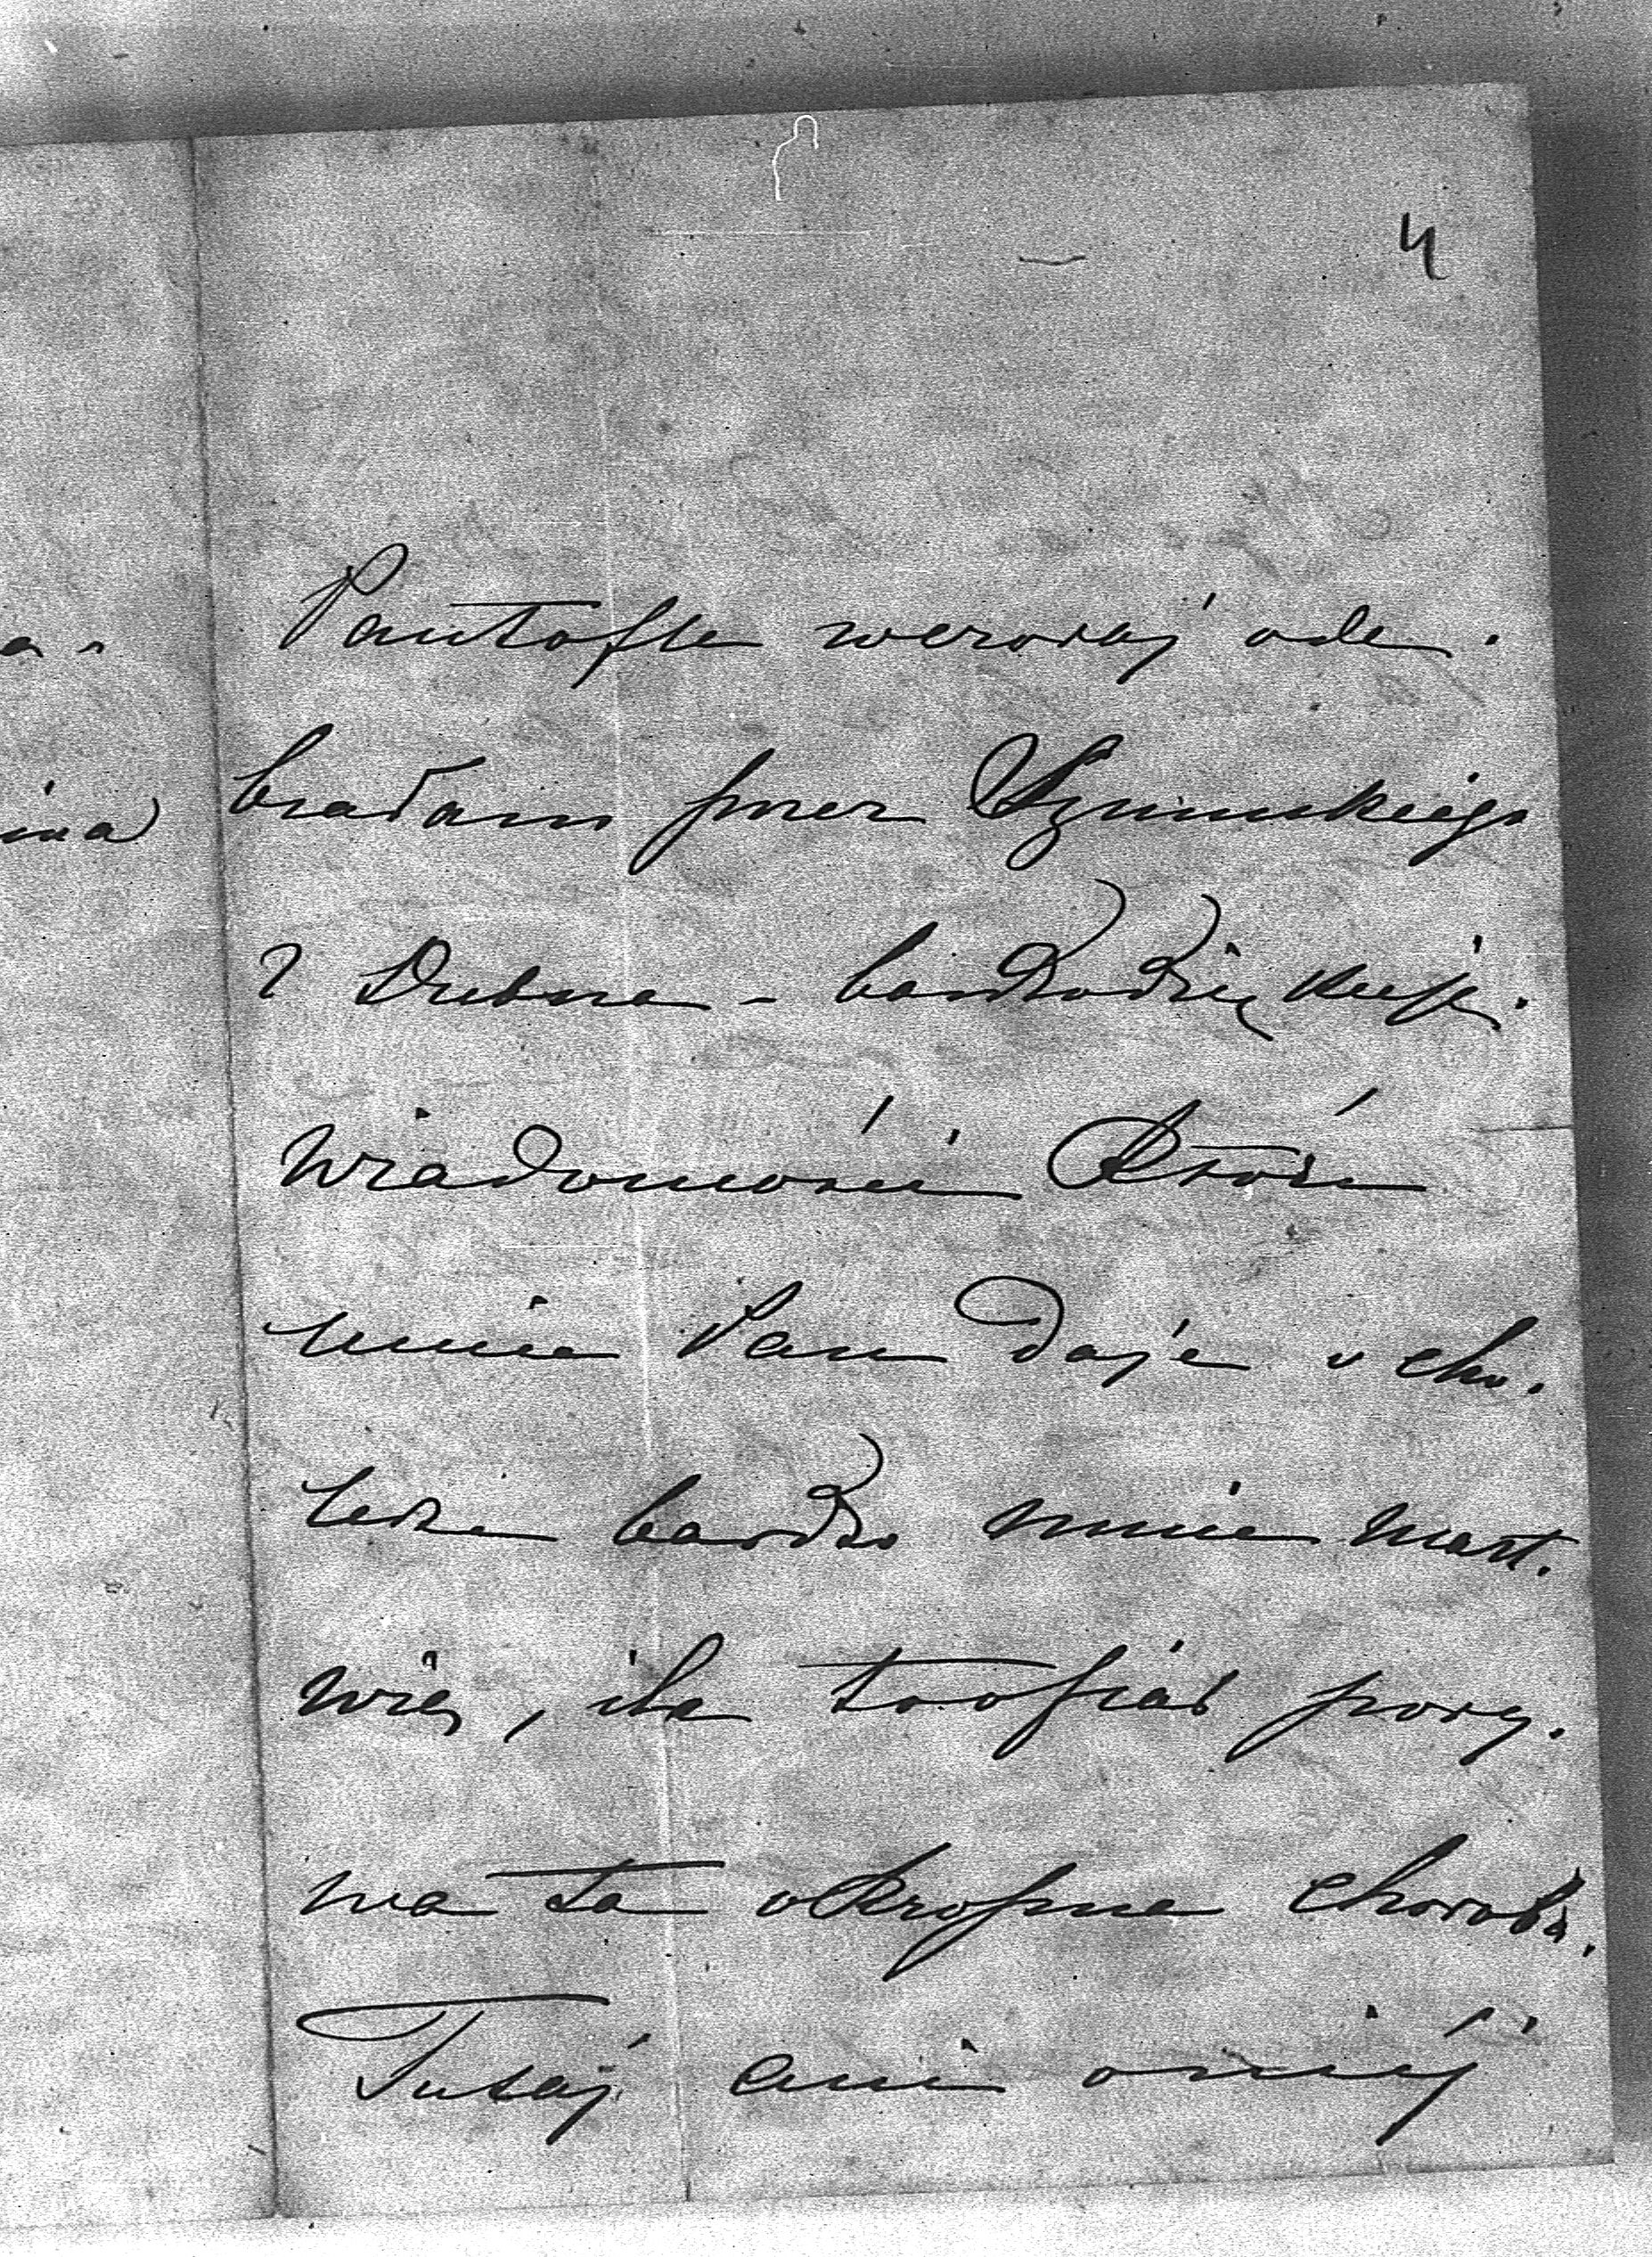 4
Pantofle wczoraj ode.
brałam przez Szumskiego
z Dubna - bardzo dziękuję.
Wiadomości które
mnie Pan daje o cho.
lerze bardzo mnie mart.
wią, ile trofiar pory.
wa ta okropna choroba.
Tutaj ani o niéj